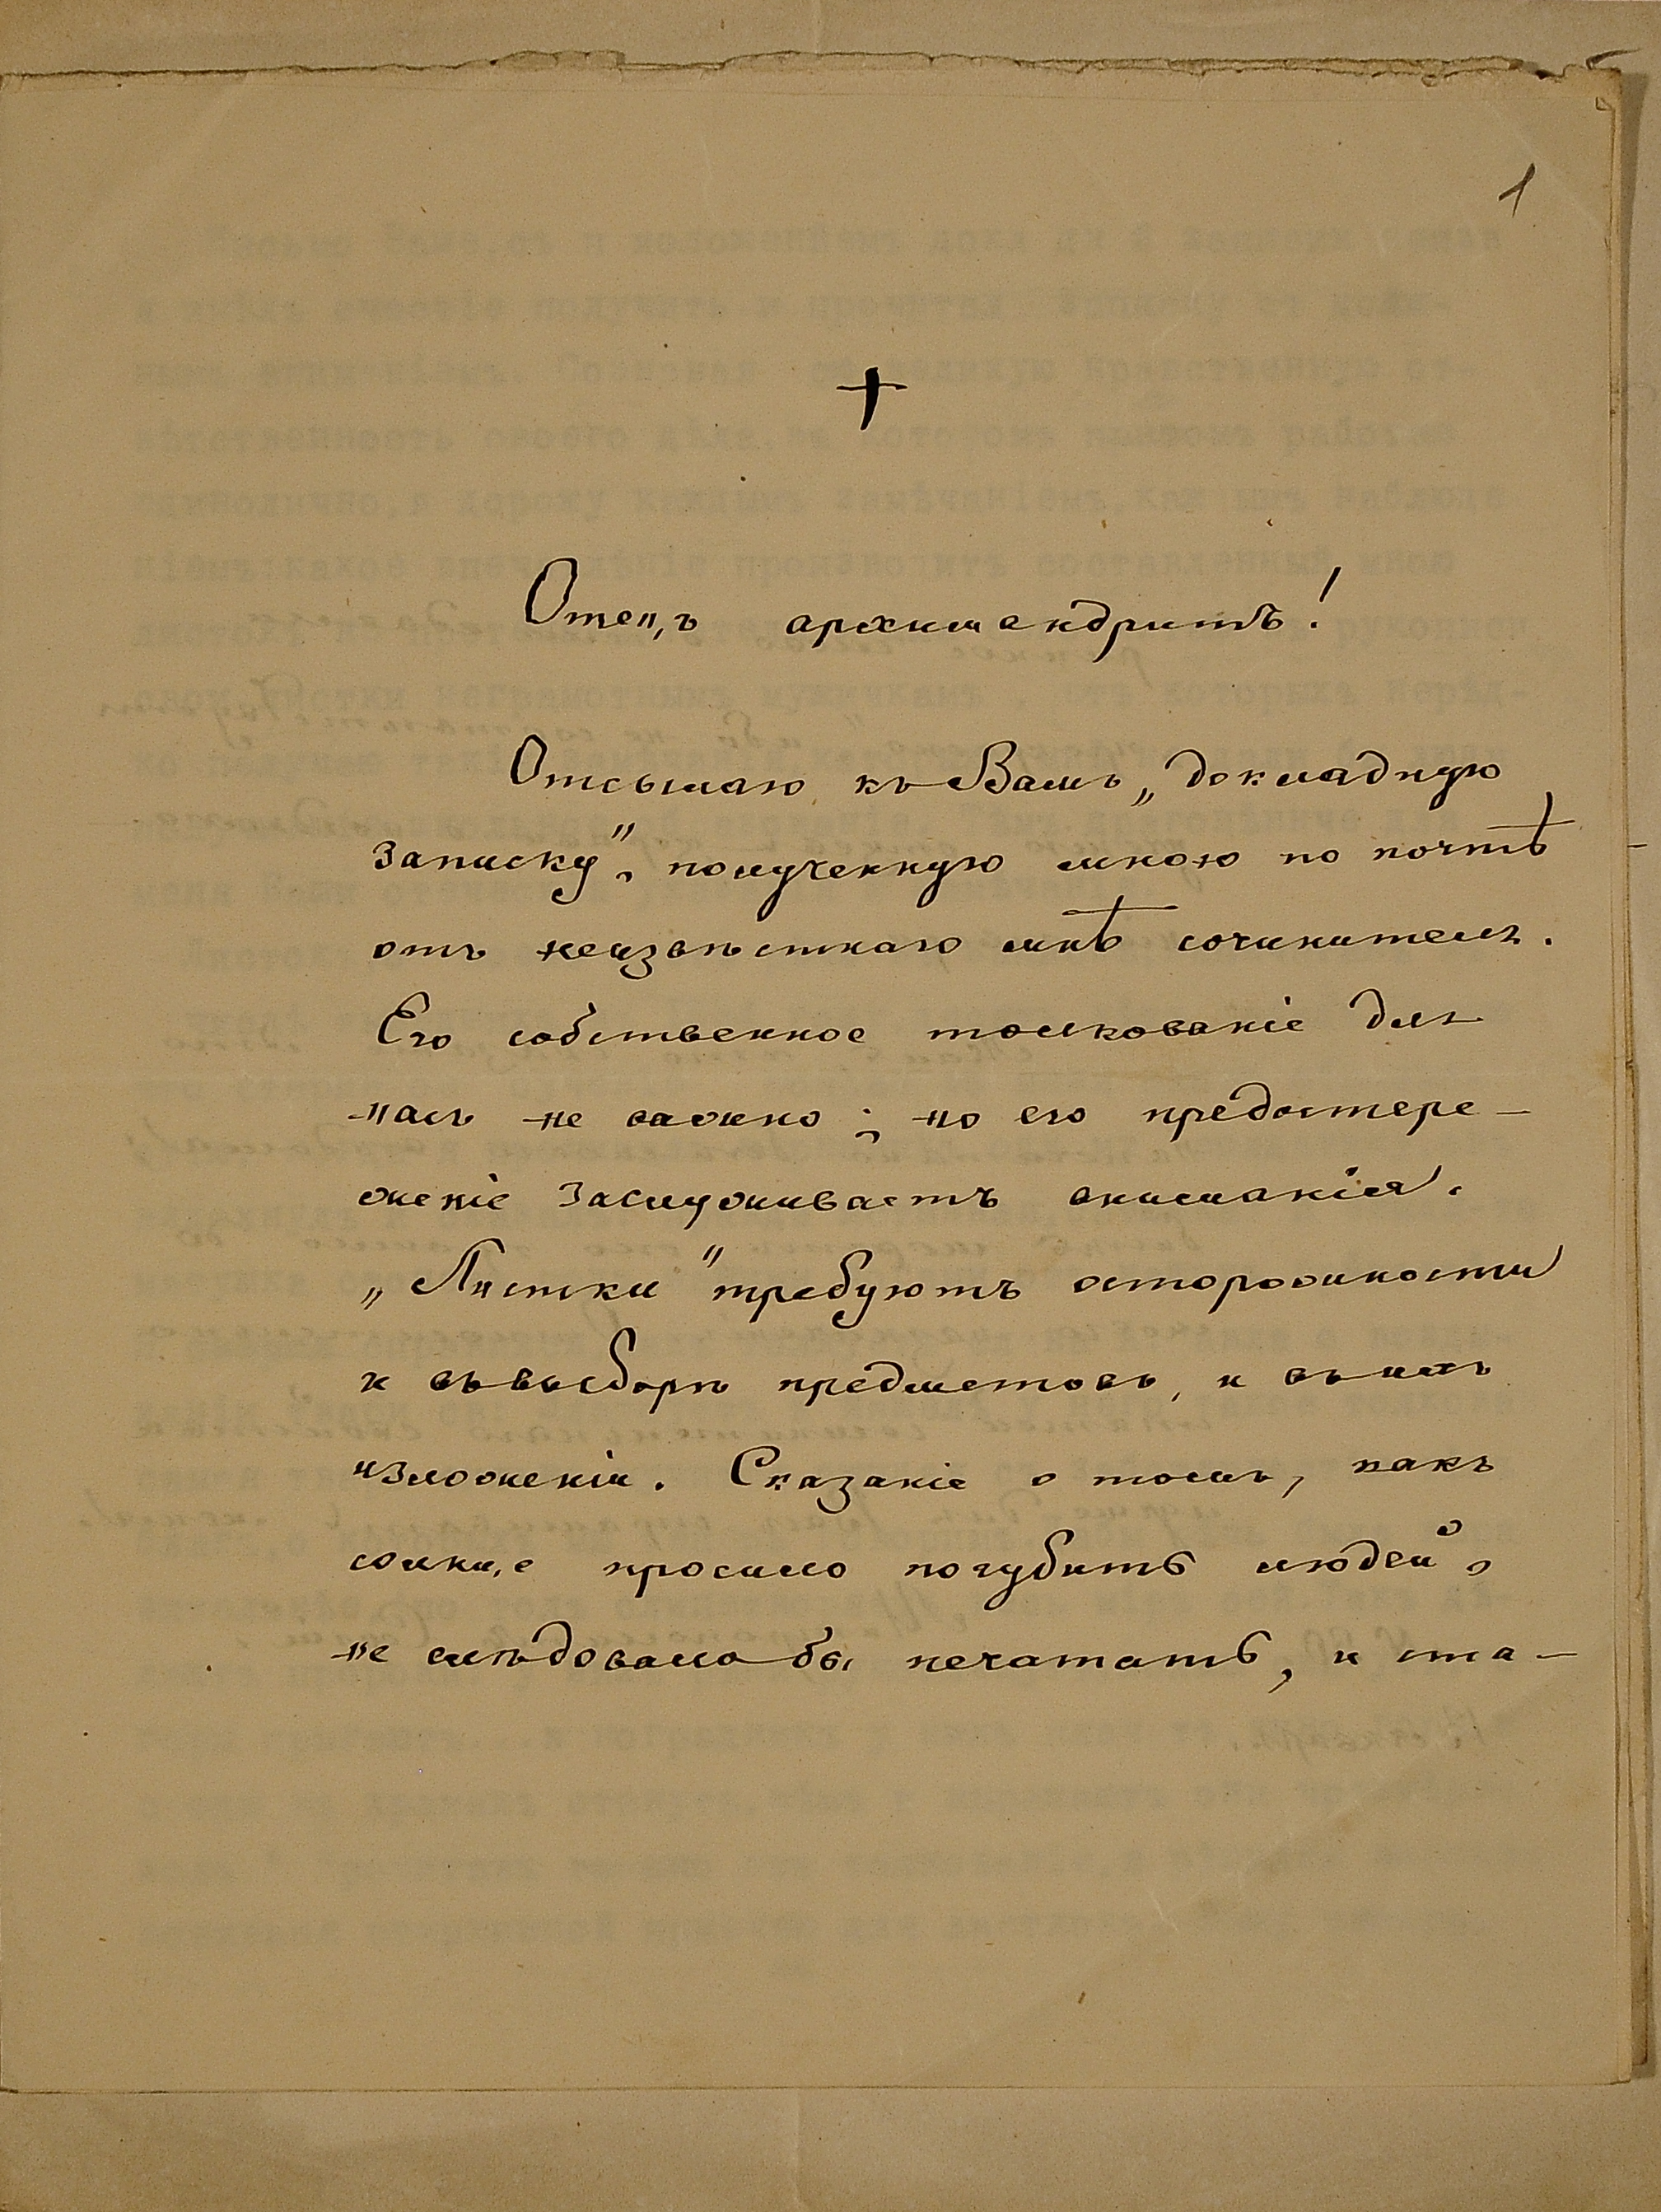 1
†
Отецъ архимандритъ!
Отсылаю къ Вамъ „докладную
записку", полученную мною по почтѣ
отъ неизвѣстнаго мнѣ сочинителя.
Его собственное толкованіе для
насъ не важно; но его предостере-
женіе заслуживаетъ вниманія.
„Листки" требуютъ осторожности
и въ выборѣ предметовъ, и въ ихъ
изложеніи. Сказаніе о томъ, какъ
солнце просило погубить людей,
не слѣдовало бы печатать, и ста-